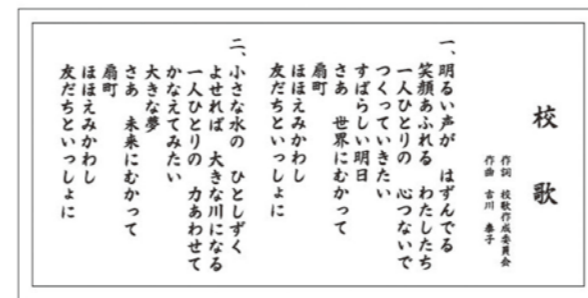 校歌
作詞 校歌作成委員会
作曲 吉川 泰子
一、明るい声が はずんでる
笑顔あふれる わたしたち
一人ひとりの 心つないで
つくっていきたい
すばらしい明日
さあ 世界にむかって
扇町
ほほえみかわし
友だちといっしょに
二、小さな水の ひとしずく
よせれば 大きな川になる
一人ひとりの 力あわせて
かなえてみたい
大きな夢
さあ 未来にむかって
扇町
ほほえみかわし
友だちといっしょに